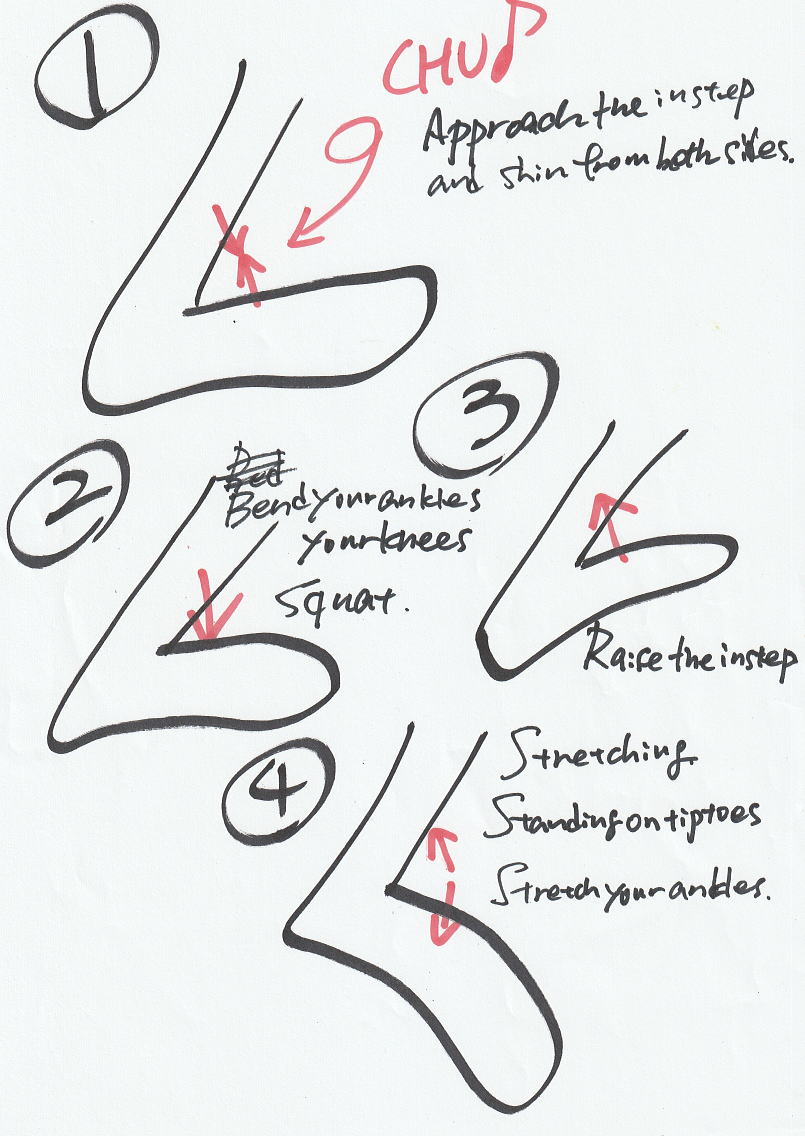 1
CHU♪
Approach the instep
and shin from both sides.
2
Bend your ankles
your knees
Squat.
3
Raise the instep
4
Stretching
Standing on tiptoes
Stretch your ankles.